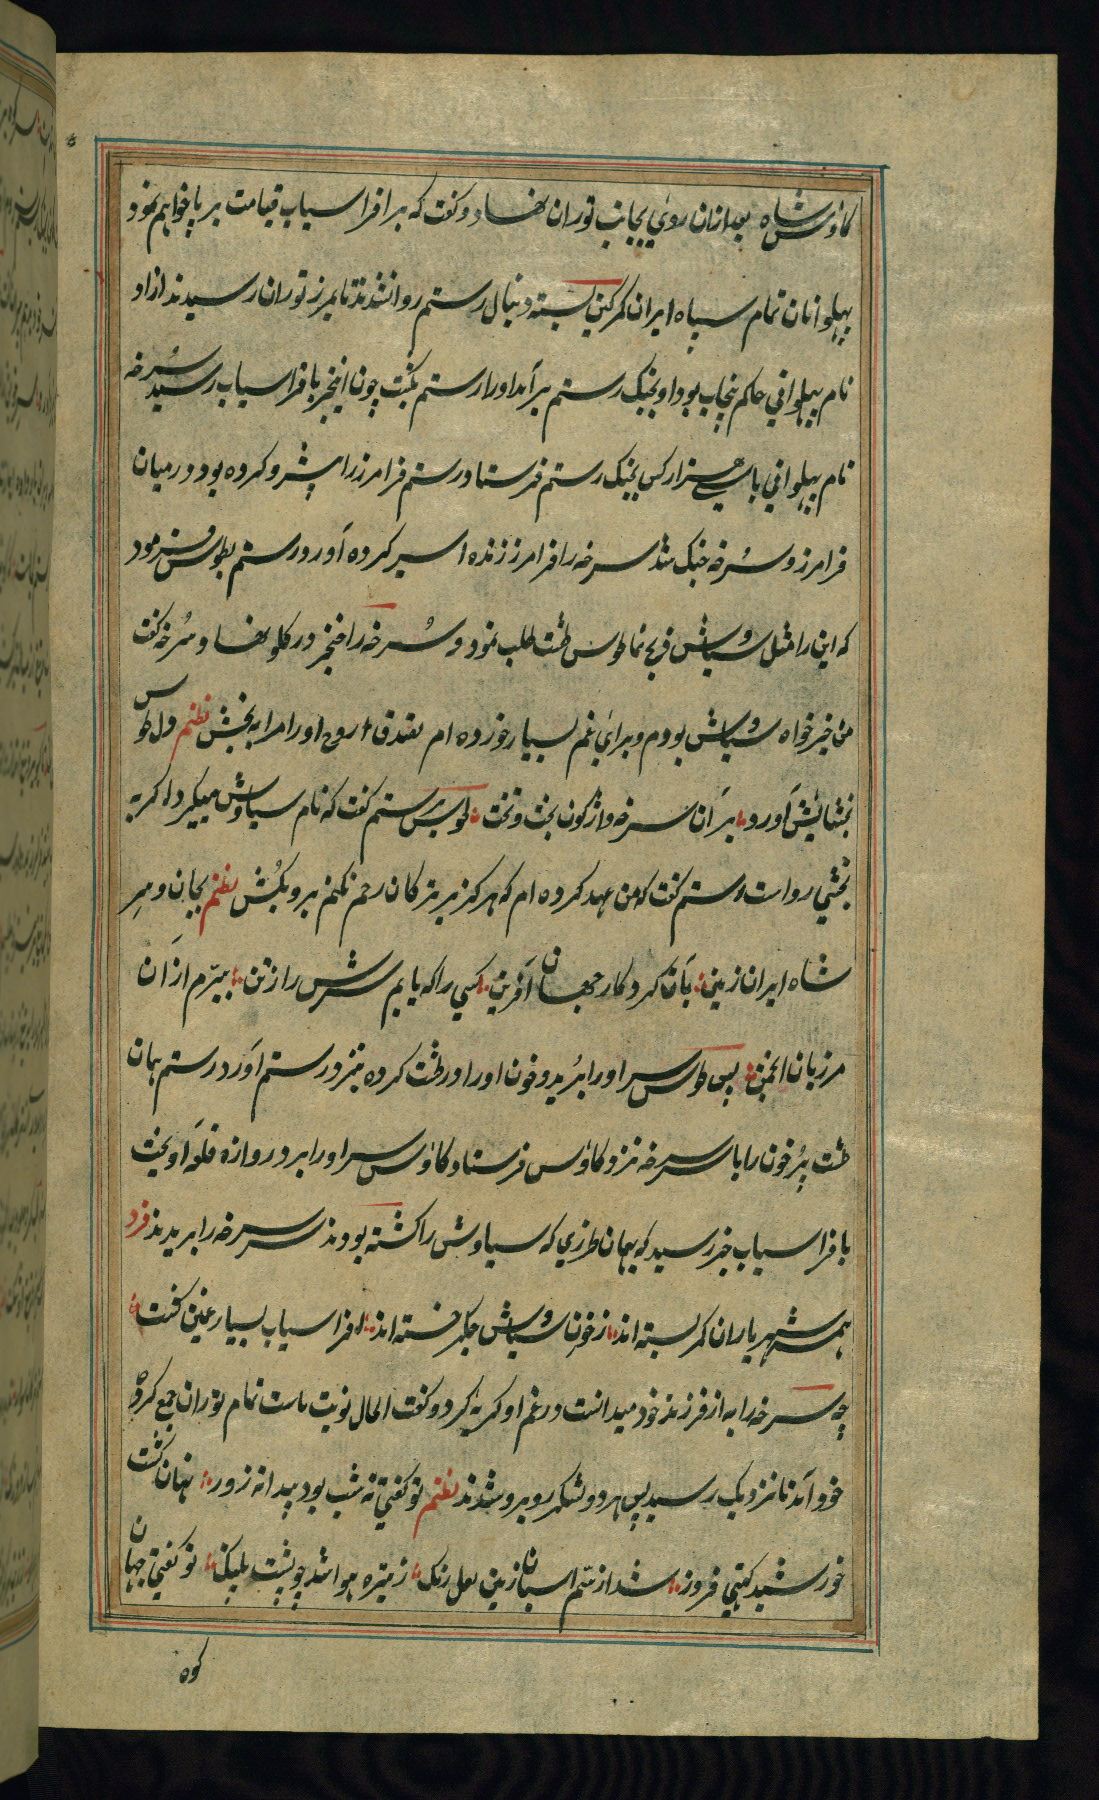 کاؤس شاه بعد ازان روی بجانب توران نهاد و کفت که بر افراسیاب قیامت بر پا خواهم نمود
پهلوانان تمام سپاه ایران کمر کین بسته دنبال رستم روانشدند تا بمرز توران رسیدند ازاد
نام پهلوانی حاکم پنجاب بود او بجنک رستم برآمد او را رستم بکشت چون این خبر بافراسیاب رسید سُرخه
نام پهلوانی با سی هزار کس بجنک رستم فرستاد رستم فرامرز را پیشرو کرده بود در میان
فرامرز و سُرخه جنک شد سرخه را فرامرز زنده اسیر کرده آورد رستم بطوس فرمود
که این را مثل سیاوش ذبح نما طوس طشت طلب نمود و سُرخه را خنجر در کلو نهاد و سُرخه کفت
من خیر خواه سیاوش بودم و برای غم بسیار خورده ام بصدق روح او را مرا به بخش نظم دل طوس
بخشایش آورد بر آن سرخه واژکون بخت و تخت طوس برستم کفت که نام سیاوش میکیرد اکر به
بخشی رواست رستم کفت که من عهد کرده ام که هرکز بر ترکان رحم نکنم برو بکُش نظم بجان و سِر
شاه ایران زمین بآن کردکار جهان آفرین کسی را که یابم سرش را ز تن ببرّم از آن
مرزبان انجمن پس طوس سر او را ببُرید و خون او را در طشت کرده نزد رستم آورد رستم همان
طشت پُر خون را با سر سرخه نزد کاؤس فرستاد کاؤس سر او را بر دروازه قلعه آویخت
بافراسیاب خبر رسید که بهمان طرزی که سیاوش را کشته بودند سر سرخه را بریدند فرد
همه شهریاران کمر بسته اند ز خون سیاوش جکر خسته اند افراسیاب بسیار غمین کشت
چه سرخه را به از فرزند خود میدانست در غم او کریه کرد و کفت الحال نوبت ماست تمام توران جمع کرده
خود آمد تا نزدیک رسید پس هر دو لشکر روبرو شدند نظم تو کفتی نه شب بود پیدا نه روز نهان کشت
خورشید کیتی فروز شد از سّم اسبان زمین لعل رنک ز نیزه هوا شد چو پشت پلنک تو کفتی جهان
کوه